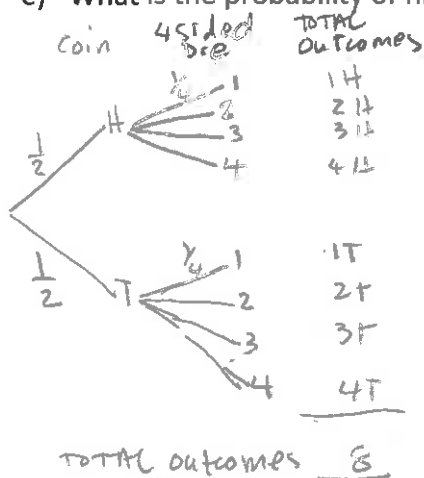 What is the probability of
coin 4 sided Die TOTAL OUTCOMES
1/4 1 1H
2 2H
1/2 H 3 3H
4 4H
1/4 1 1T
1/2 T 2 2T
3 3T
4 4T
TOTAL outcomes 8